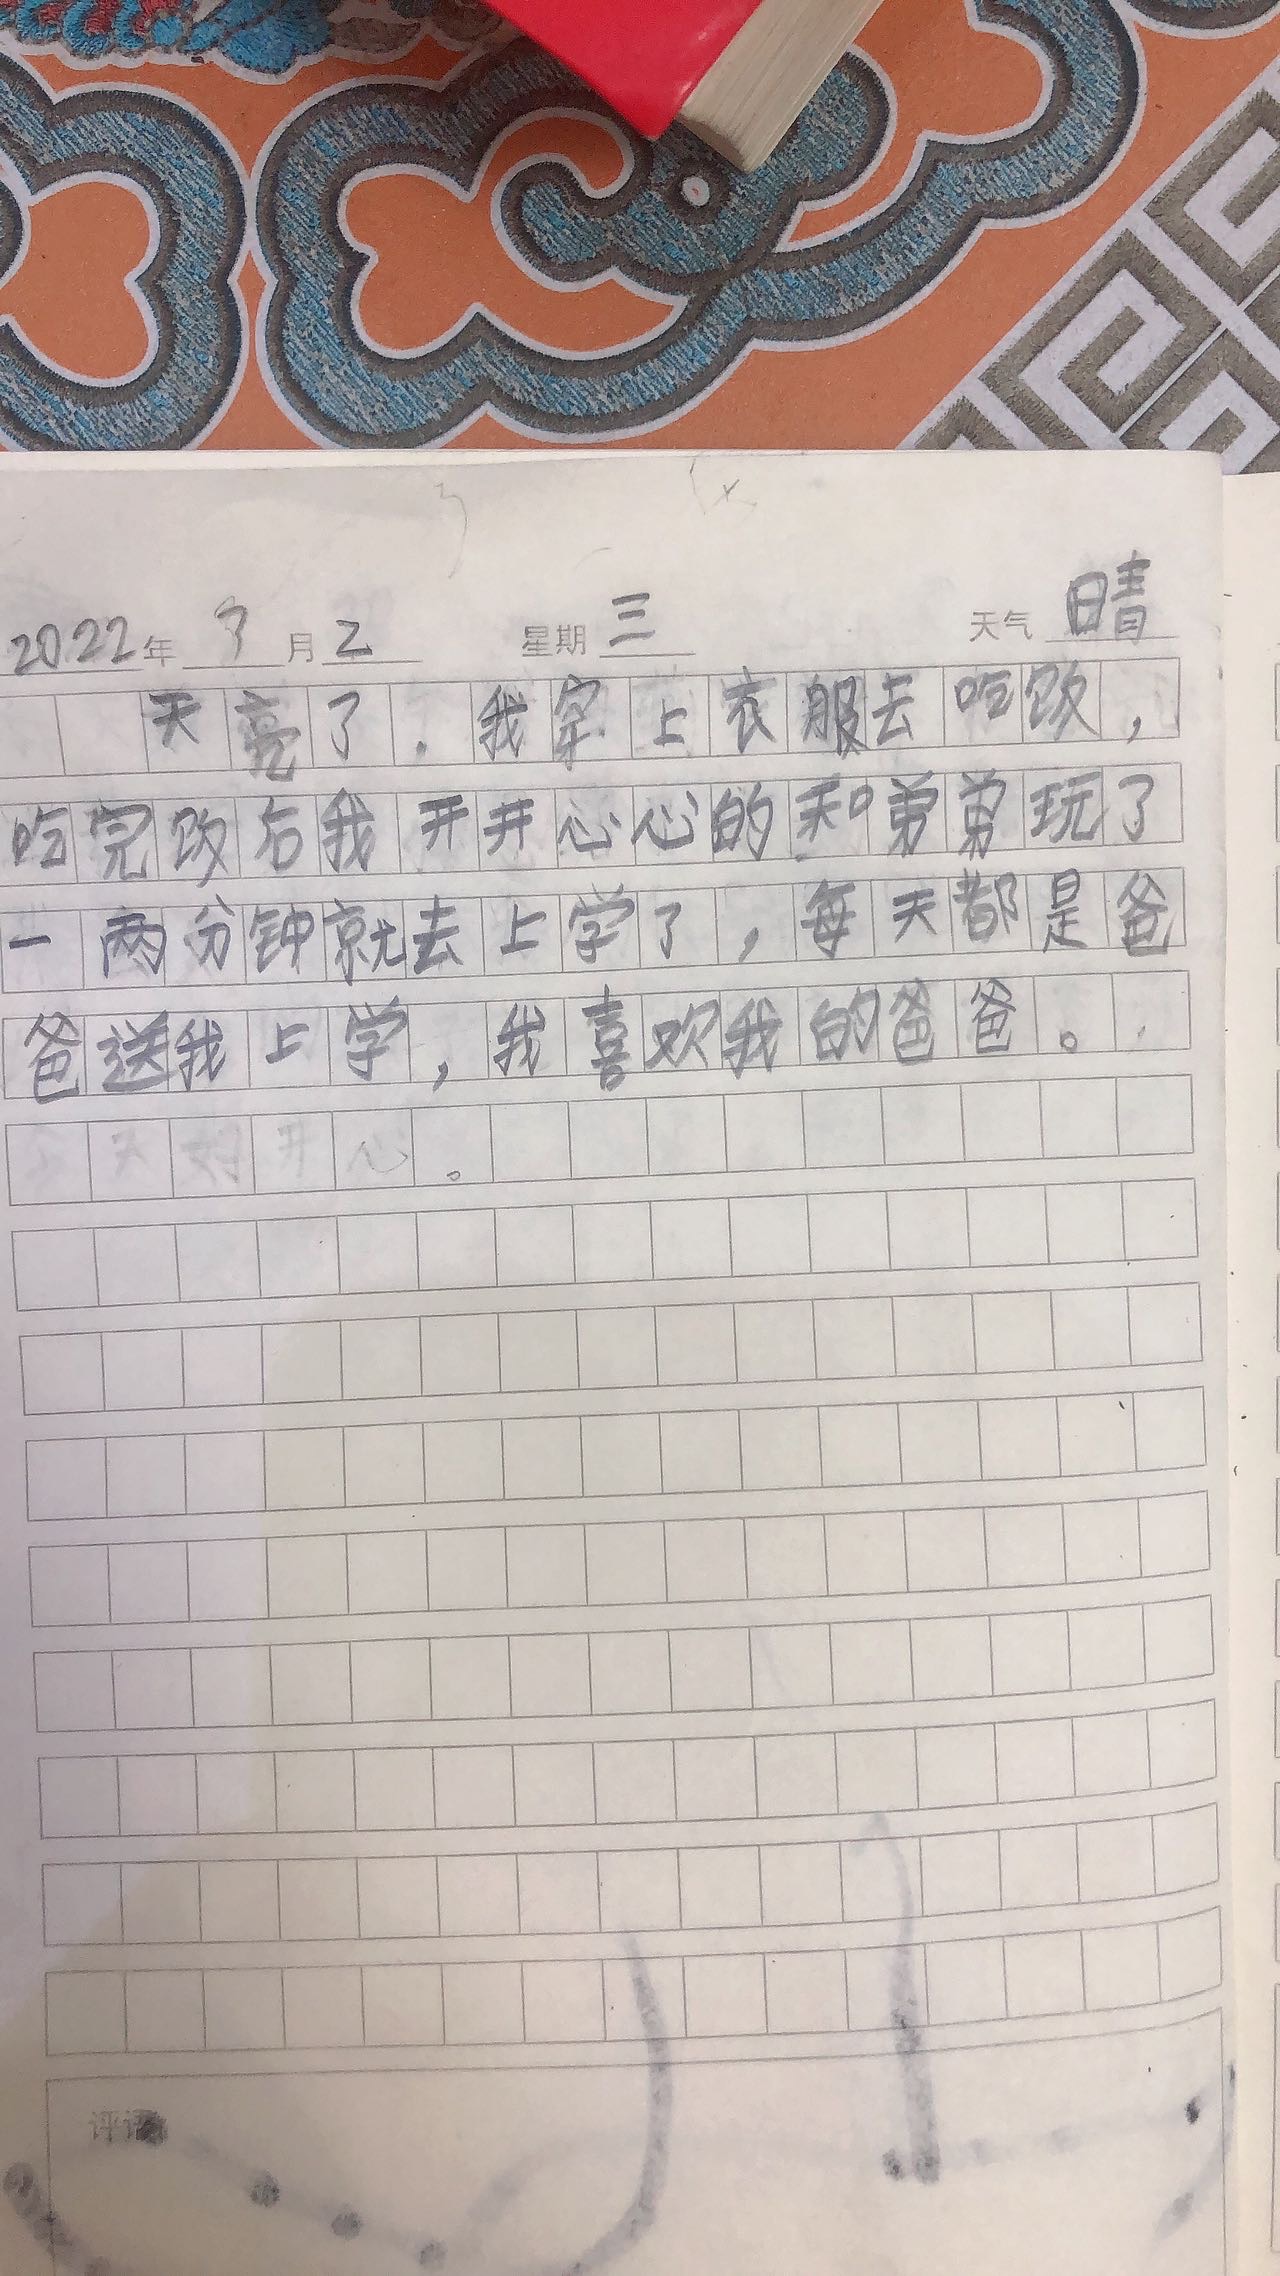 2022年 3 月 2 星期 三 天气 晴
天亮了.我穿上衣服去吃饭,
吃完饭后我开开心心的和弟弟玩了
一两分钟就去上学了,每天都是爸
爸送我上学,我喜欢我的爸爸。
开心。